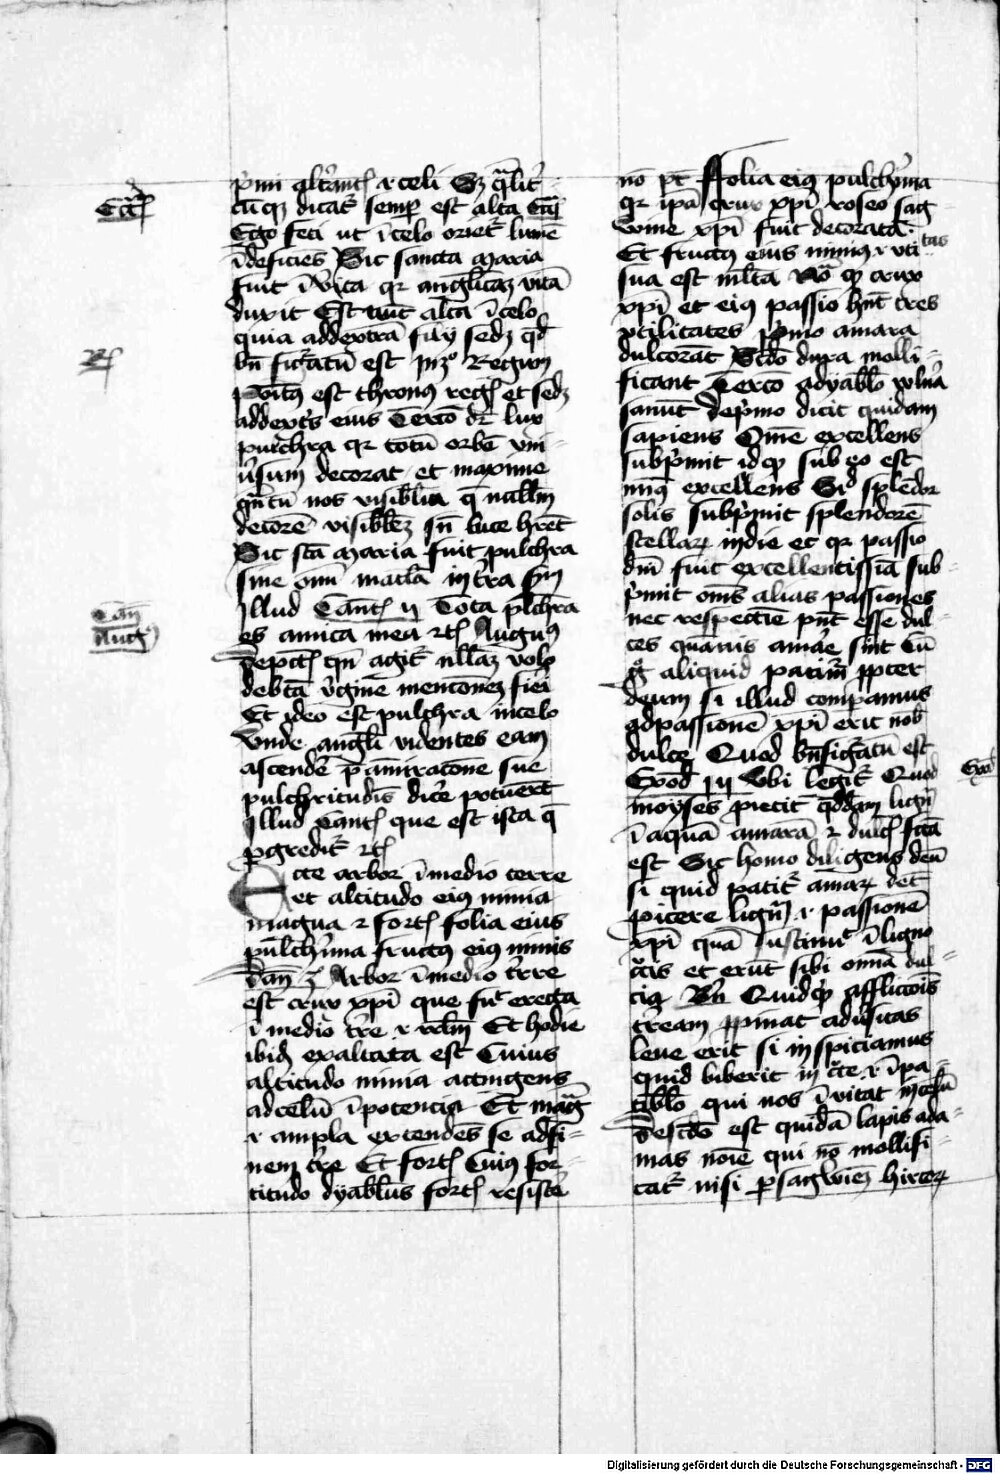 Ecci
p̄mi altānt̄ ⁊ celi Sz qͣlit̄
cūqz dicat̄ semp̄ est alta Ecci
Ego feci ut ī celo oriet̄ lumē
īdeficiēs Sic sancta maria
fuit ī vita qr anglicaz vitā
duxit Est alta ī celo
quia addextrā filij sedz qd
bn̄ figᵃtū est Regum
R
est thronꝰ reḡ et sedz
addextᵃ eius Tercō dr̄ lux
pulchra qr totū orbē vni
ūsum decorat et maxime
nos visiblia q̄ nullm̄
decorē visiblez sn̄ luce hrēt
Sic stā maria fuit pulchra
sine omī macla
Illud Cant̄ ij Tota plchra
Can
es amica mea ⁊t̄ Augꝰ
Augꝰ
de pct̄ agit̄ nllaz volo
debtā v̄gine mentionez fieri
Et ideo est pulchra in celo
Vnde angli videntes eam
ascendē p̄ amiratōne sue
pulchritudīs dicē potuerūt
Illud Cant̄ que est ista q̄
p̄gredit̄ ⁊t̄
Ecce arbor ī medio terre
et altitudo eiꝰ nimia
magna ⁊ fort̄ folia eius
pulchīma fructꝰ eiꝰ nimis
Dan̄ Arbor ī medio t̄rre
est crux xp̄i que fuᵗ erecta
ī medio t̄re ⁊ Et hodie
ibidz exaltata est Cuius
altitudo nimia attingens
ad celū ī potencia Et maḡ
⁊ ampla extendēs se ad fi-
nem t̄re Et fort̄ Cuiꝰ for-
titudo dyablus fort̄ resistē
nō pt̄ Folia eiꝰ pulchīma
qr ipā crux xp̄i roseo sag-
wine xp̄i fuit decorata
Et fructꝰ eius nimiꝰ ⁊ vti-
tas
sua est mlta Nō qz crux
xp̄i et eiꝰ passio hn̄t tres
vtilitates p̄mo amara
dulcorāt Scdō dura molli-
ficant Tercō adyablo vlnā
sanūt de p̄mo dicit quidam
sapiens Om̄e excellens
subp̄mit idqz sub eo est
minꝰ excellens Sic splēdor
solis subp̄mit splendorē
stellaꝝ in die et qr passio
dn̄i fuit excellentissīa sub-
p̄mit om̄s alias passiones
nec respectīe pn̄t esse dul-
ces quāuis amāe sint Cū
gͦ aliquid patim̄ ꝓpter
deum si illud compamus
ad passionē xp̄i erit nob̄
dulce Quod bn̄ figᵃtū est
Exod̄
Exod̄ Vbi legit̄ Quod
moyses piecit qddam lignū
ī aquā amarā ⁊ dulc̄ fctā
est Sic homo diligens deū
si quid patit̄ amaꝝ det̄
picere lignū ⁊ passionē
xp̄i quā sustinuᵗ ī ligno
cͣcis et erūt sibi omīa dul-
cia Bn̄ Quidqz afflictōis
t̄ream ꝓpinat adūsitas
leue erit si inspiciamus
quid biberit in cͣce ⁊ ī pa-
tiblo qui nos īvitāt in celū
De scdō est quidā lapis ada-
mas noīe qui nō mollifi-
cat̄ nisi p̄ sagwinez hircoꝝ
Digitalisierung gefördert durch die Deutsche Forschungsgemeinschaft - DFG